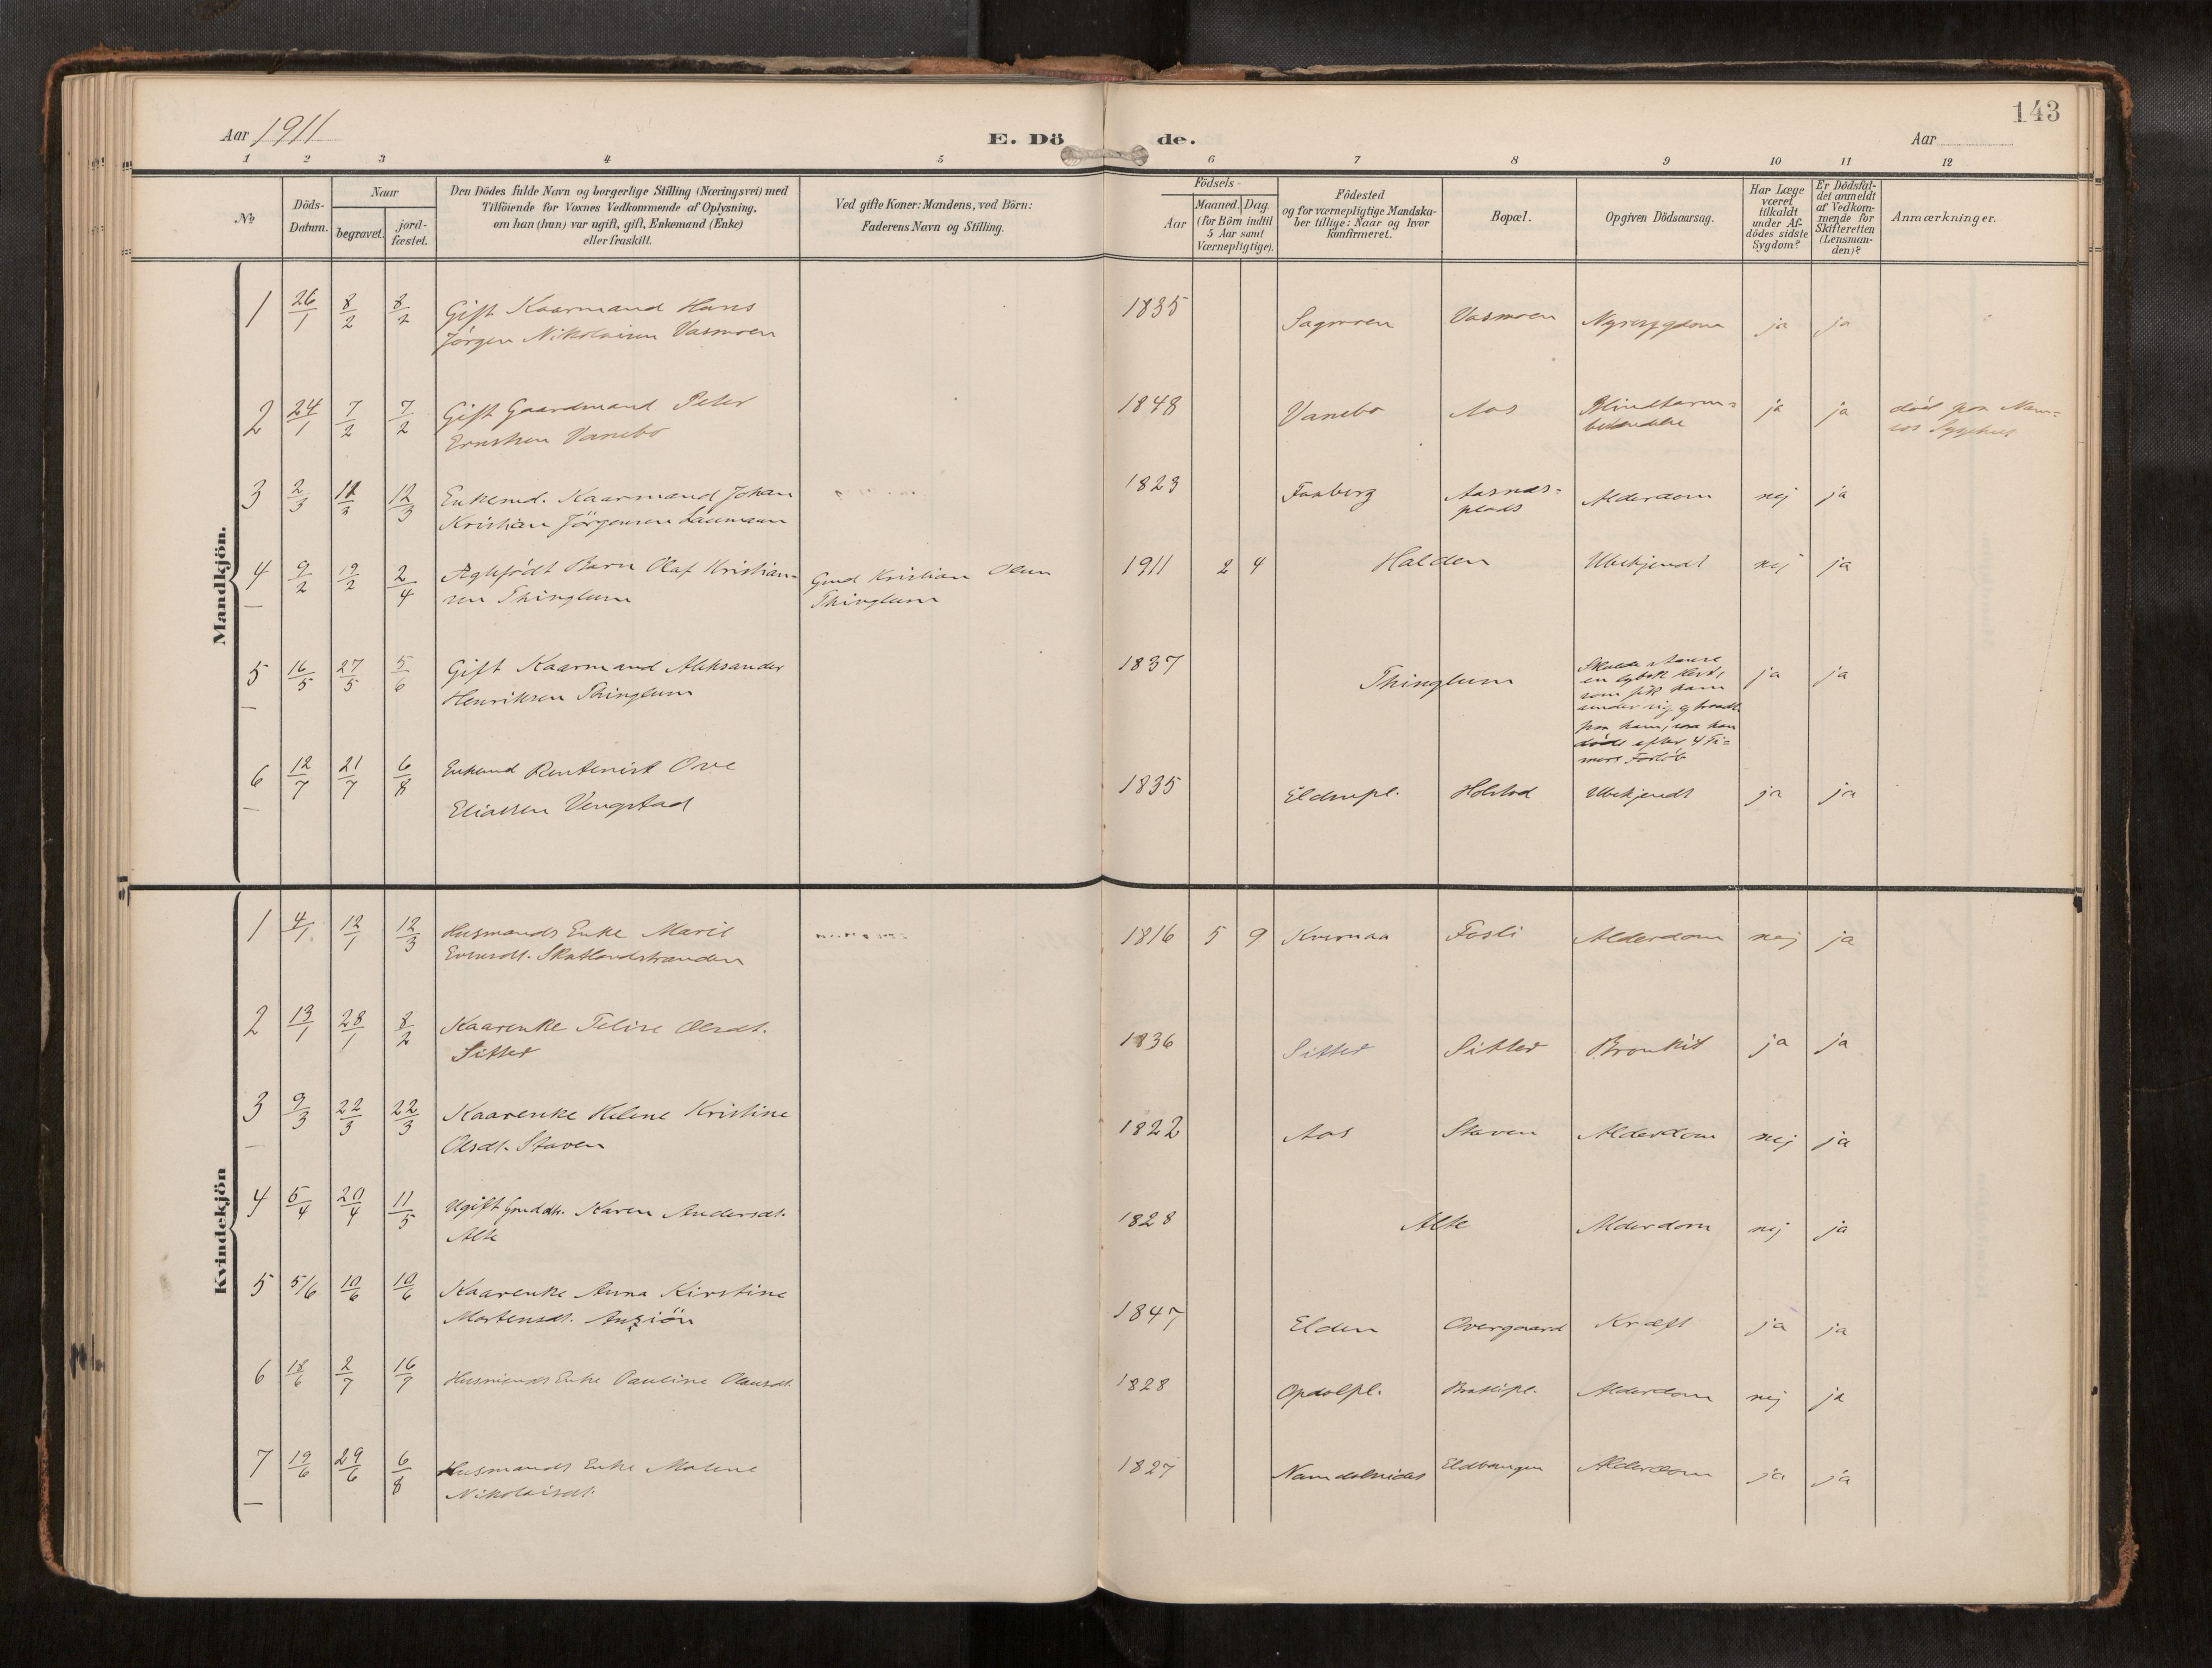 143
Aar 1911
E. Dö de.
Aar
1 2 3 4 5 6 7 8 9 10 11 12
№
Döds-
Datum.
Naar
begravet.
jord-
fæstet.
Den Dödes fulde Navn og borgerlige Stilling (Næringsvei) med
Tilföiende for Voxnes Vedkommende af Oplysning,
om han (hun) var ugift, gift, Enkemand (Enke)
eller fraskilt.
Ved gifte Koner: Mandens, ved Börn:
Faderens Navn og Stilling.
Födsels-
Aar
Maaned. Dag.
(for Börn indtil
5 Aar samt
Værnepligtige).
Födested
og for værnepligtige Mandska-
ber tillige: Naar og hvor
konfirmeret.
Bopæl.
Opgiven Dödsaarsag.
Har Læge
været
tilkaldt
under Af-
dödes sidste
Sygdom?
Er Dödsfal-
det anmeldt
af Vedkom-
mende for
Skifteretten
(Lensman-
den)?
Anmærkninger.
Mandkjön.
1 26/1 8/2 8/2 Gift Kaarmand Hans
Jørgen Nikolaisen Vasmoen
1835 Sagmoen Vasmoen Nyresygdom ja ja
2 24/1 7/2 7/2 Gift Gaardmand Peter
Ernstsen Vanebo
1848 Vanebo Aas Blindtarm=
ja ja død paa Nam=
sos Sygehus
3 2/3 12/3 12/3 Enkemd. Kaarmand Johan
Kristian Jörgensen
1823 Faaberg Aasnes=
plads
Alderdom nej ja
4 9/2 19/2 2/4 Ægtefødt Barn Olaf Kristian=
sen Thinglum
Gmd Kristian Olsen
Thinglum
1911 2 4 Halden Ubekjendt nej ja
5 16/5 27/5 5/6 Gift Kaarmand Aleksander
Henriksen Thinglum
1837 Thinglum
som fik ham
under sig og
paa ham, saa han
døde efter 4 Ti=
mers Forløb
ja ja
6 12/7 21/7 6/8 Enkemd Rentenist Ove
Eliassen Vengstad
1835 Eldenpl. Holstad Ubekjendt ja ja
Kvindekjön
1 4/1 12/1 12/3 Husmands Enke Marit
Evensdt. Skatlandstranden
1816 5 9 Kvernaa Fosli Alderdom nej ja
2 13/1 28/1 8/2 Kaarenke Feline Olsdt.
Sitter
1836 Sitter Sitter Bronkit ja ja
3 9/3 22/3 22/3 Kaarenke Helene Kristine
Olsdt. Staven
1822 Aas Staven Alderdom nej ja
4 5/4 20/4 11/5 Ugift Gmddtr. Karen Andersdt.
Alte
1828 Alte Alderdom nej ja
5 5/6 10/6 10/6 Kaarenke Anna Kirstine
Mortensdt. Anziön
1847 Elden Overgaard Kræft ja ja
6 18/6 2/7 16/9 Husmands Enke Pauline Olausdt.
1828 Opdalpl. Alderdom nej ja
7 19/6 29/6 6/8 Husmands Enke Malene
Nikolaisdt.
1827 Namdalseidet Alderdom ja ja